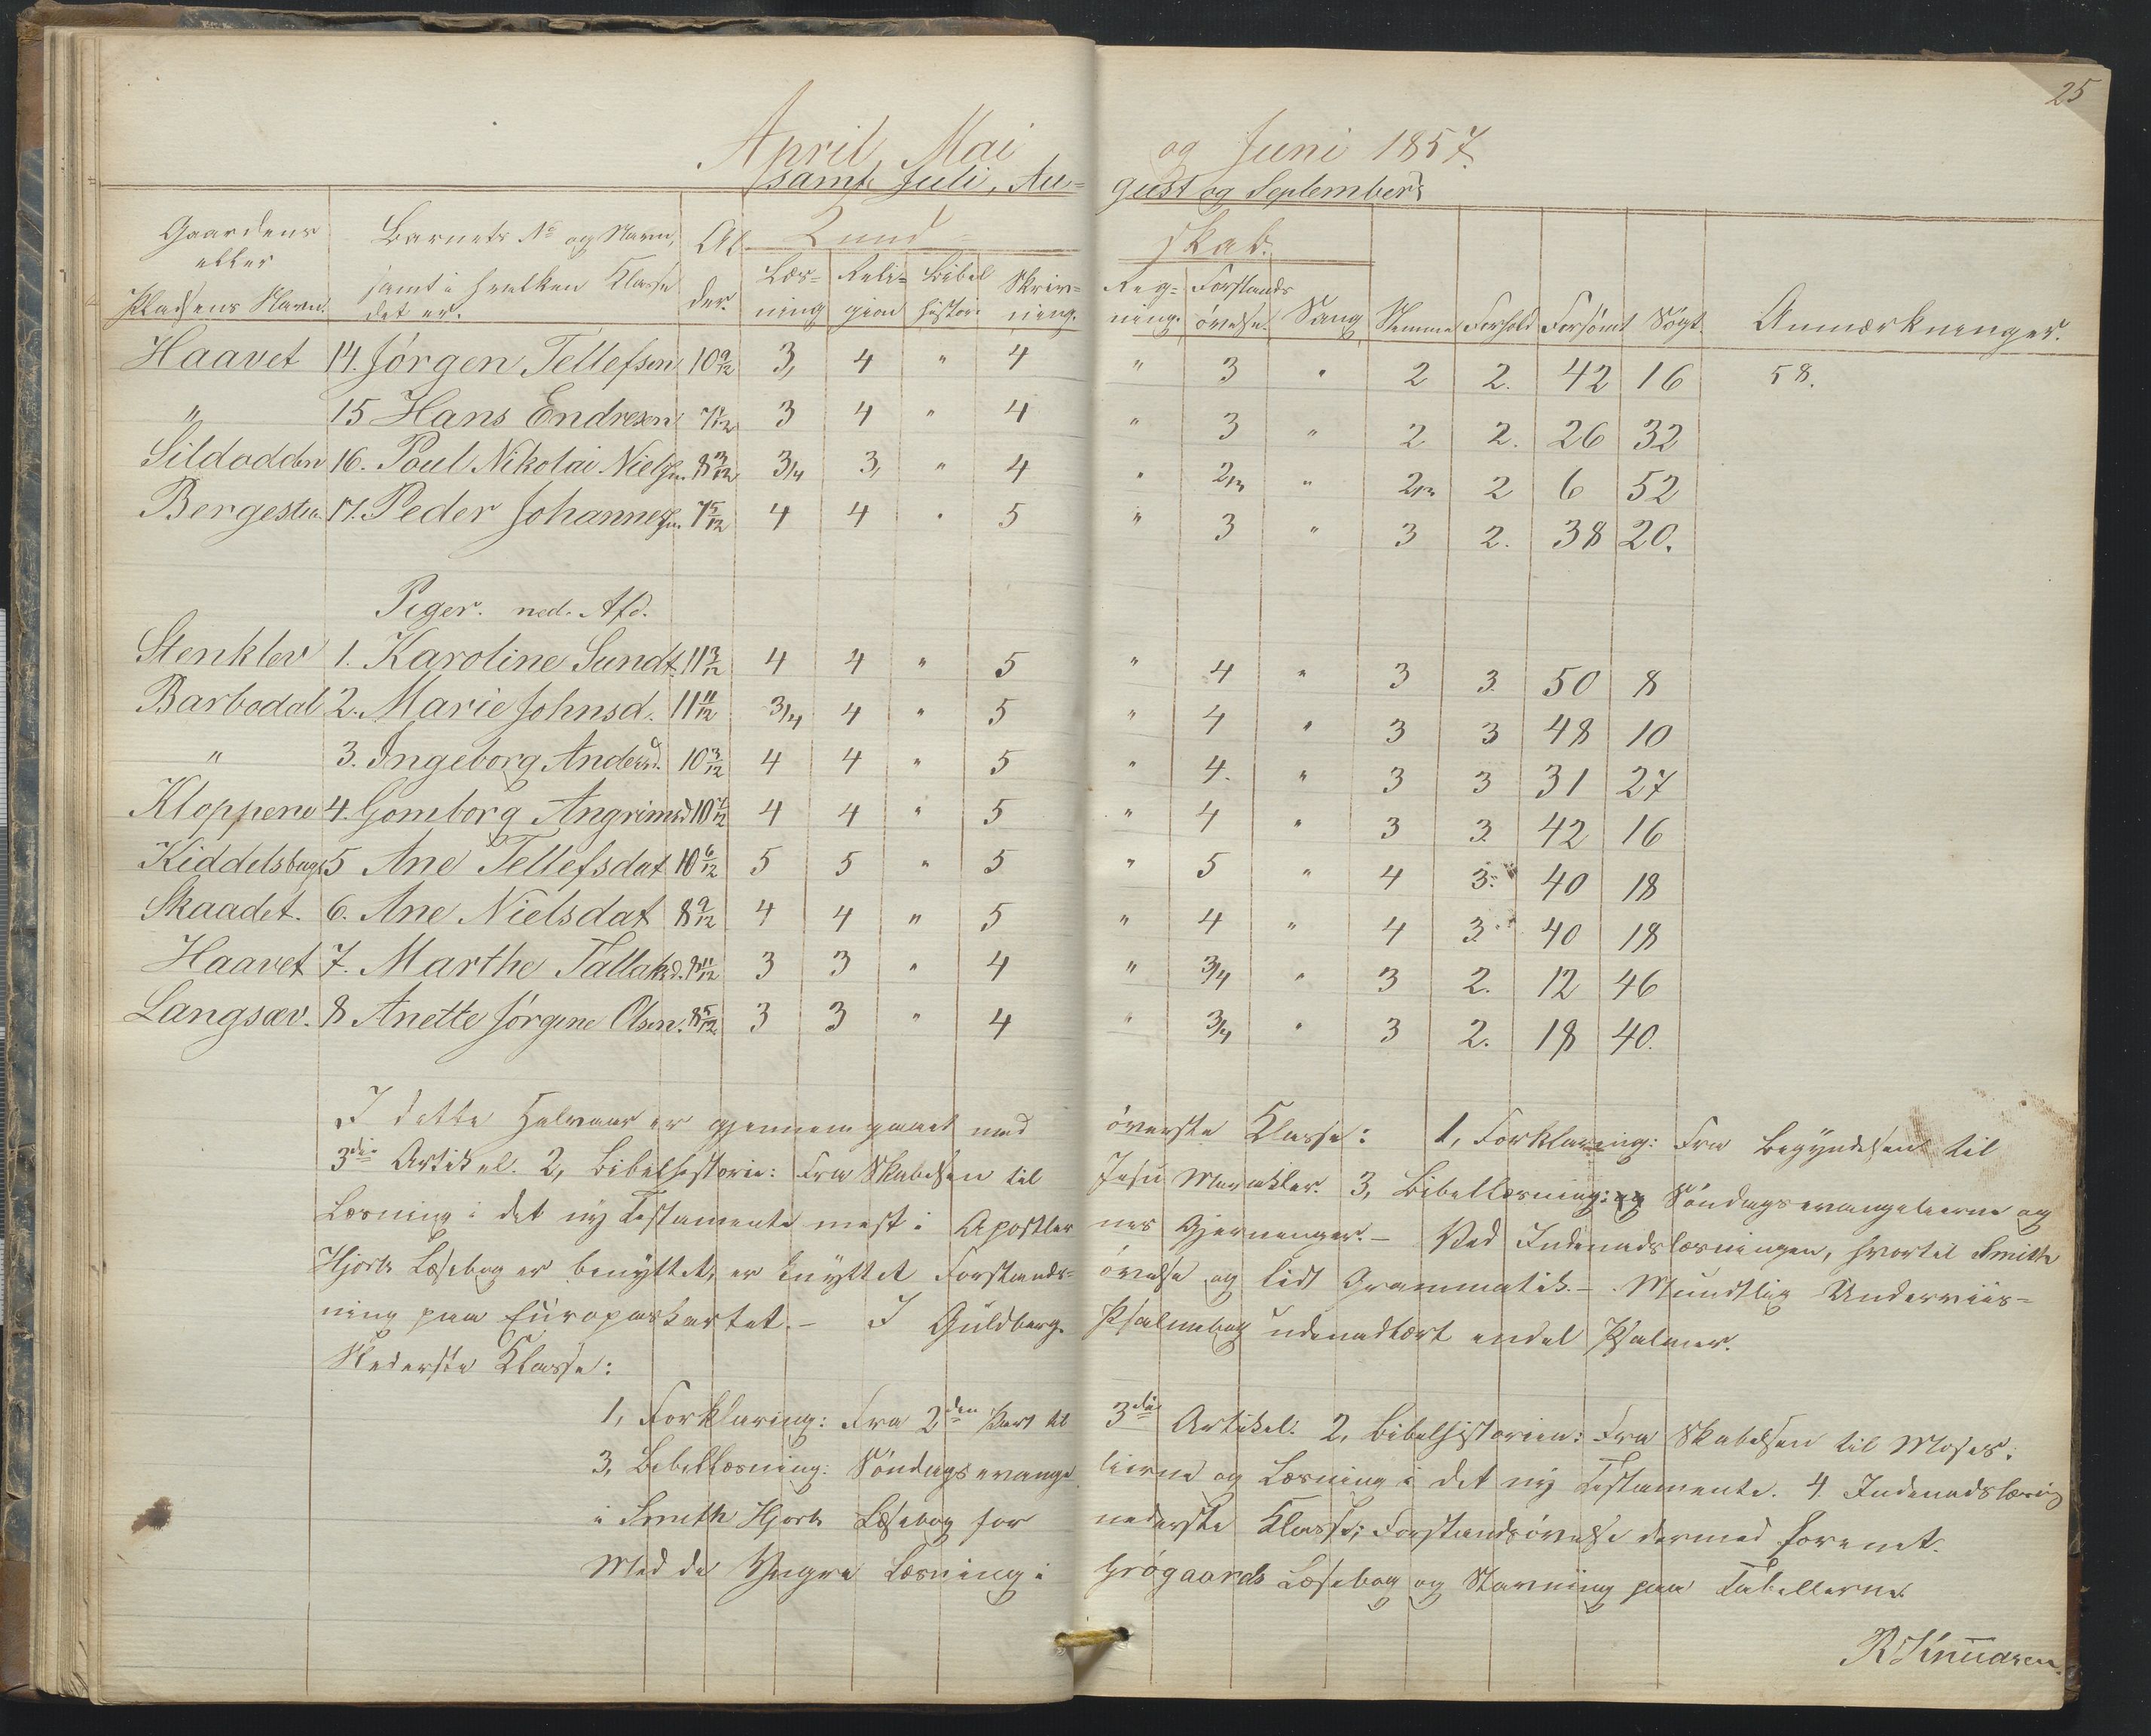 25
April, Mai og Juni 1857.
samt Juli, August og September
Gaardens eller Pladsens Navn. Barnets No og Navn, samt i hvilken Klasse det er. Alder. Kundskab. Læsning Religion Bibelhistorie Skrivning. Regning. Forstandsøvelse. Sang Stemme Forhold Forsömt Sögt. Anmærkninger.
Haavet 14. Jörgen Tellefsen 10 9/12 3, 4 " 4 " 3 " 2 2. 42 16 58.
" 15 Hans Endresen 3 4 " 4 " 3 " 2 2. 26 32
Sildodden 16. Poul Nikolai Nielsen. 8 3/12 3/4 3, " 4 " 2/3 " 2/3 2 6 52
Bergestu. 17. Peder Johannesen. 7 5/12 4 4 " 5 " 3 " 3 2. 38 20.
Piger. ned. Afd.
Stenklev 1. Karoline Sundt. 11 3/12 4 4 " 5 " 4 " 3 3. 50 8
Barbodal 2. Marie Johnsd. 11 11/12 3/4 4 " 5 " 4 " 3 3 48 10
" 3. Ingeborg Andersd. 10 3/12 4 4 " 5 " 4. " 3 3 31 27
Kloppene 4. Gomborg Angrimsd 4 4 " 5 " 4 " 3 3. 42 16
Kiddelsbugt 5 Ane Tellefsdat 10 6/12 5 5 " 5 " 5 " 4 3. 40 18
Skaadet. 6. Ane Nielsdat 8 9/12 4 4 " 5 " 4 " 4 3. 40 18
Haavet 7. Marthe Tallaksd. 3 3 " 4 " 3/4 " 3 2. 12 46
Langsæv. 8 Anette Jörgine Olsen. 8 5/12 3 3 " 4 " 3/4 " 3 2. 18 40.
I dette Halvaar er gjennemgaaet med överste Klasse: 1, Forklaring: Fra Begyndelsen til
3die Artikel. 2, Bibelhistorie: Fra Skabelsen til Jesu Mirakler. 3, Bibellæsning: Söndagsevangelierne og
Læsning i det ny Testamente mest i Apostlernes Gjerninger. – Ved Indenadslæsningen, hvortil Smith
Hjorts Læsebog er benyttet, er knyttet Forstandsövelse og lidt Grammatik. – Mundtlig Underviis-
ning paa Europaskartet. – I Guldbergs Psalmebog udenadlært endel Psalmer.
Nederste Klasse:
1, Forklaring: Fra 2den Part til 3die Artikel. 2, Bibelhistorien: Fra Skabelsen til Moses.
3, Bibellæsning: Söndagsevangelierne og Læsning i det ny Testamente. 4. Indenadslæsning
i Smith Hjorts Læsebog for nederste Klasse; Forstandsövelse dermed forenet.
Med de Yngre Læsning i Grögaards Læsebog og Stavning paa Tabellerne.
R Knudsen.